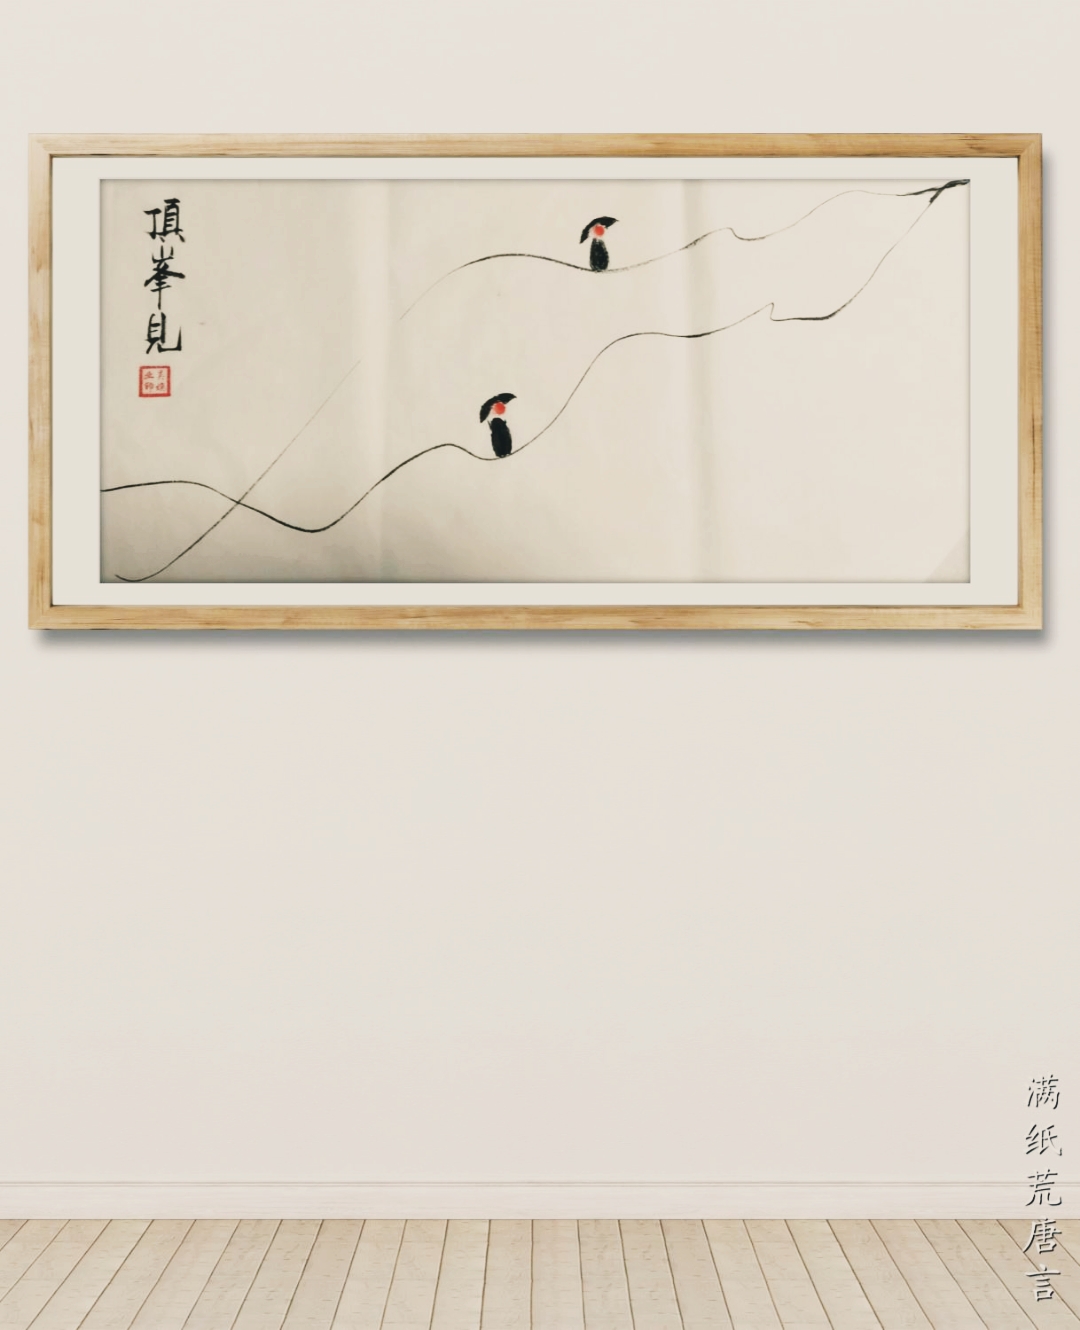 頂峯見
满纸荒唐言